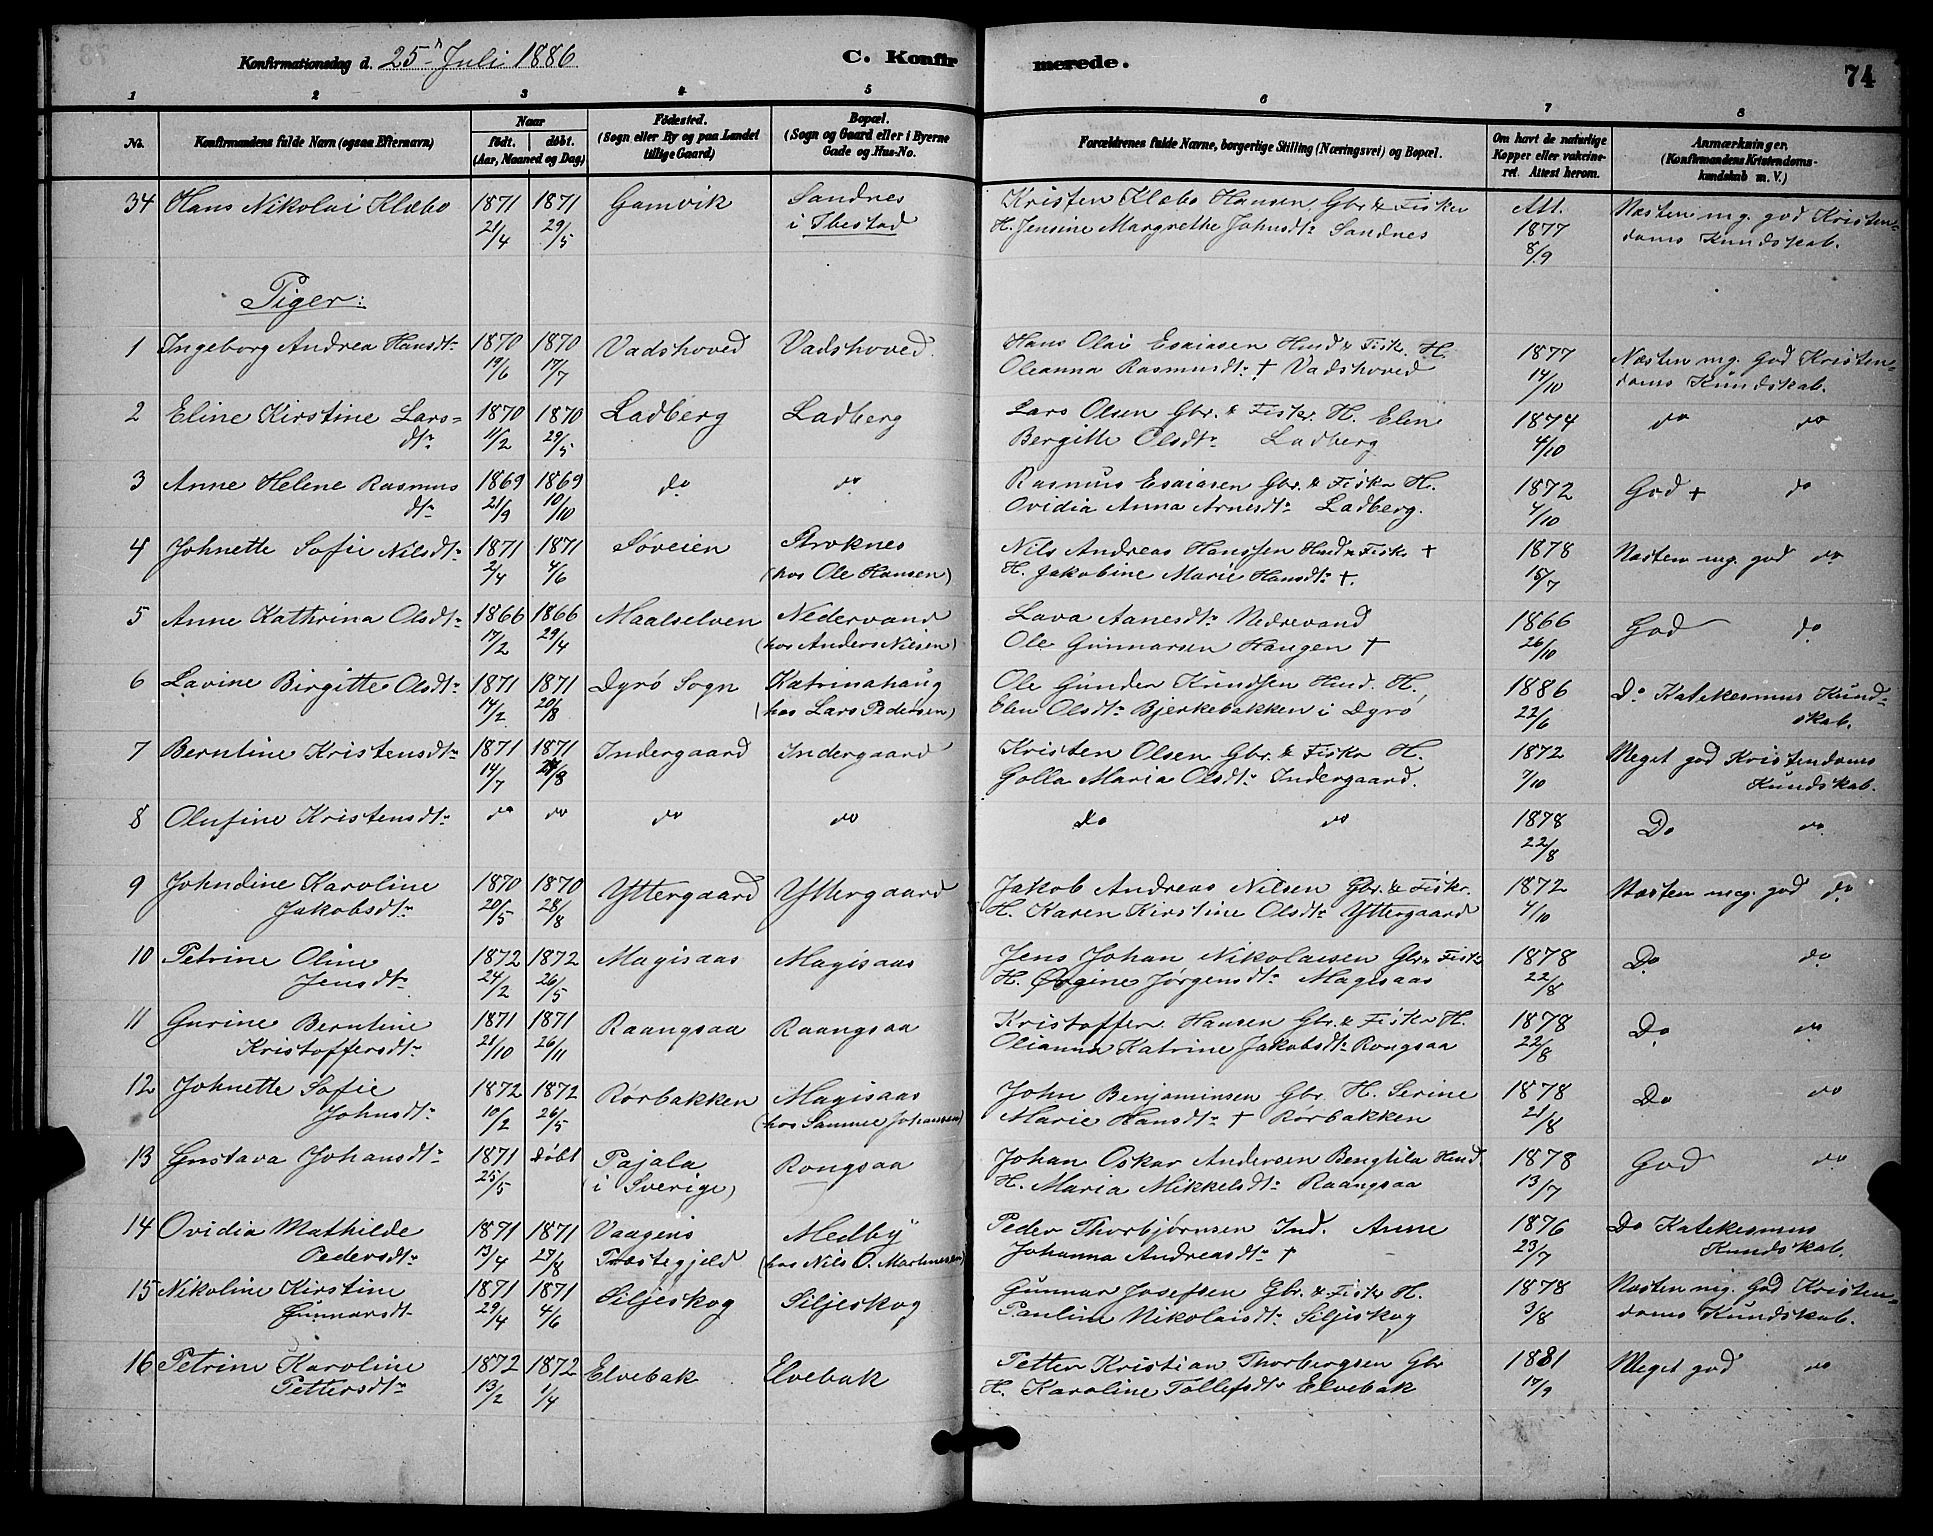 Konfirmationsdag d. 25de Juli 1886
C. Konfirmerede.
74
1 2 3 4 5 6 7 8
No.
Konfirmandens fulde Navn (ogsaa Efternavn)
Naar
født. døbt.
(Aar, Maaned og Dag)
Fødested.
(Sogn eller By og paa Landet
tillige Gaard)
Bopæl.
(Sogn og Gaard eller i Byerne
Gade og Hus-No.
Forældrenes fulde Navne, borgerlige Stilling (Næringsvei) og Bopæl.
Om havt de naturlige
Kopper eller vakcine-
ret. Attest herom.
Anmærkninger.
(Konfirmandens Kristendoms-
kundskab m. V.)
34 Hans Nikolai Klæbo 1871 21/4 1871 29/5 Gamvik Sandnes
i Ibestad
Kristen Klæbo Hansen Gbr. & Fisker
H. Jensine Margrethe Johnsdtr Sandnes
Att. 1877 8/9
Næsten mg. god Kristen-
doms Kundskab.
Piger:
1 Ingeborg Andrea Hansdtr 1870 19/6 1870 17/7 Vadshoved Vadshoved.
Hans Olai Esaiasen Huud & Fiskr. H.
Oleanna Rasmusdtr † Vadshoved
1877 14/10
Næsten mg. God Kristen-
doms Kundskab.
2 Eline Kirstine Lars-
dtr 1870 11/2 1870 29/5 Ladberg Ladberg
Lars Olsen Gbr. & Fiskr. H. Elen
Bergitte Olsdtr Ladberg
1874 4/10
do do
3 Anne Helene Rasmus
dtr 1869 21/9 1869 10/10 do do
Rasmus Esaiasen Gbr. & Fiskr H.
Ovidia Anna Arnesdtr Ladberg.
1872 4/10
God + do
4 Johnette Sofie Nilsdtr 1871 2/4 1871 4/6 Søveien Stroknes
(hos Ole Hansen)
Nils Andreas Hanssen Huud & Fiskr †
H. Jakobine Marie Hansdtr †.
1878 15/7
Næsten mg. god do
5 Anne Kathrina Olsdtr 1866 17/2 1866 29/4 Maalselven Nedervand
(hos Anders Nilsen)
Lava Aanesdtr Nedrevand
Ole Gunnarsen Haugen †
1866 26/10
God do
6 Lavine Birgitte Olsdtr 1871 14/2 1871 20/8 Dyrø Sogn Katrinahaug
(hos Lars Pedersen)
Ole Gunder Knudsen Huud. H.
Elen Olsdtr Bjerkebakken i Dyrø
1886 22/6
Do Katekesmus Kund-
skab.
7 Berntine Kristensdtr 1871 14/7 1871 /8 Indergaard Indergaard
Kristen Olsen Gbr. & Fiskr H.
Golla Maria Olsdtr Indergaard.
1872 7/10
Meget god Kristendoms
Kundskab.
8 Olufine Kristensdtr do do do do
Do do
1878 22/8
Do do
9 Johndine Karoline
Jakobsdtr 1870 20/5 1870 28/8 Yttergaard Yttergaard
Jakob Andreas Nilsen Gbr. & Fiskr.
H. Karen Kirstine Olsdtr Yttergaard
1872 4/10
Næsten meg. god do
10 Petrine Oline
Jensdtr 1872 24/2 1872 26/5 Magisaas Magisaas
Jens Johan Nikolaisen Gbr & Fiskr
H.Ørgine Jørgensdtr Magisaas
1878 22/8
Do do
11 Gurine Berntine
Kristoffersdtr 1871 21/10 1871 26/11 Raangsaa Raangsaa
Kristoffer Hansen Gbr. & Fiskr H.
Olianna Katrine Jakobsdtr Rongsaa
1878 22/8
Do do
12 Johnette Sofie
Johnsdtr 1872 10/2 1872 26/5 Rørbakken Magisaas
(hos Samuel Johansen)
John Benjaminsen Gbr. H. Serine
Marie Hansdtr † Rørbakken
1878 21/8
Do do
13 Gustava Johansdtr 1871 25/5 Døbt Pajala
(i Sverige) Rongsaa
Johan Oskar Andersen Bengtila Huud.
H. Maria Mikkelsdtr Raangsaa
1878 13/7
God do
14 Ovidia Mathilde
Pedersdtr 1871 13/4 1871 27/8 Vaagens
Præstegjeld Medby
(hos Nils O. Martinesen)
Peder Thorbjørnsen Ind. Anne
Johanna Andreasdtr †
1876 23/7
Do Katekesmus
Kundskab.
15 Nikoline Kirstine
Gunnarsdt 1871 29/4 1871 4/6 Siljeskog Siljeskog
Gunnar Josefsen Gbr. & Fiskr H.
Paulina Nikolaisdtr Siljeskog
1878 3/8
Næsten mg. God Kristen-
doms Kundskab.
16 Petrine Karoline
Pettersdtr 1872 13/2 1872 1/4 Elvebak Elvebak
Petter Kristian Thorbergsen Gbr
H. Karoline Tollefsdtr Elvebak
1881 17/9
Meget god do